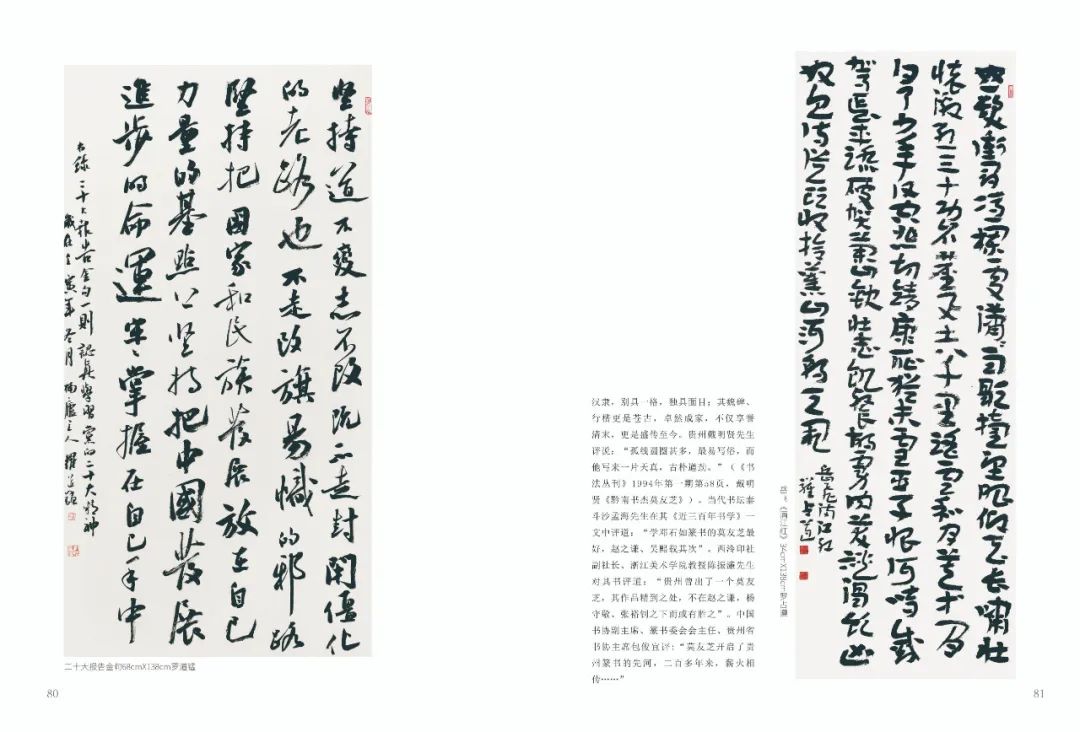 坚持道不變志不改既不走封闭僵化
的老路也不走改旗易幟的邪路
堅持把國家和民族發展放在自己
力量的基點上坚持把中國發展
進步的命運牢牢掌握在自己手中
二十大报告金句一則 認真學習党的二十大精神
歲在壬寅年冬月 主人
二十大报告金句68cmX138cm罗道锰
80
汉隶，别具一格，独具面目；其魏碑、
行楷更是苍古，卓然成家，不仅享誉
清末，更是盛传至今。贵州戴明贤先生
评说：“孤线圆圈甚多，最易写俗，而
他写来一片天真，古朴遒劲。”（《书
法丛刊》1994年第一期第58页，戴明
贤《黔南书杰莫友芝》）。当代书坛泰
斗沙孟海先生在其《近三百年书学》一
文中评道：“学邓石如篆书的莫友芝最
好，赵之谦、吴熙载其次”。西泠印社
副社长、浙江美术学院教授陈振濂先生
对其书评道：“贵州曾出了一个莫友
芝，其作品精到之处，不在赵之谦，杨
守敬、张裕钊之下而或有胜之”。中国
书协副主席、篆书委会会主任、贵州省
书协主席包俊宜评：“莫友芝开启了贵
州篆书的先河，二百多年来，薪火相
传……”
怒髮衝冠憑欄處潇潇雨歇擡望眼仰天长啸壮
怀激烈三十功名塵与土八千里路云和月莫等闲
白了少年頭空悲切靖康耻猶未雪臣子恨何時滅
驾長車踏破贺蘭山缺壮志飢餐胡虏肉笑談渴飲匈
奴血待從頭收拾舊山河朝天闕
岳飞满江红
岳飞《满江红》34cmX138cm罗占道
81